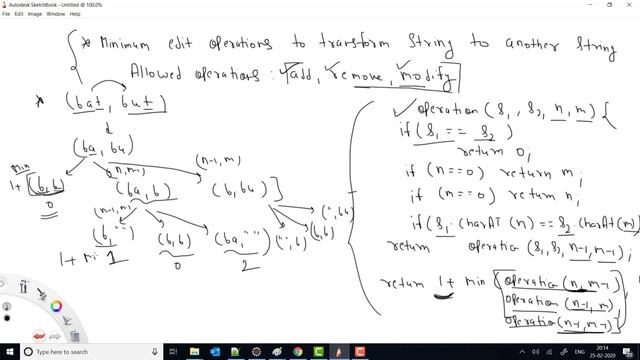 Autodesk SketchBook - Untitled @ 100.0%
File Edit Window Help
* Minimum edit operations to transform String to another String
Allowed operations: add, remove, modify
* (bat, but)
(ba, bu)
min
1+ [(b, b)
0
(n,m-1)
(ba, b)
(n-1, m)
(b, bu)
]
(n-1,m)
(b, "")
(b, b)
0
(ba, "")
2
("", b)
(b, b)
("", bu)
1 + Mi: 1
operation (s1, s2, n, m) {
if (s1 == s2)
return 0;
if (n==0) return m;
if (n==0) return n;
if (s1. charAT (n) == s2. charAt(m)
return operation (s1, s2, n-1, m-1);
return 1+ min (operation (n, m-1)
operation (n-1, m)
operation (n-1, m-1)
Type here to search
ENG
20:14
25-02-2020